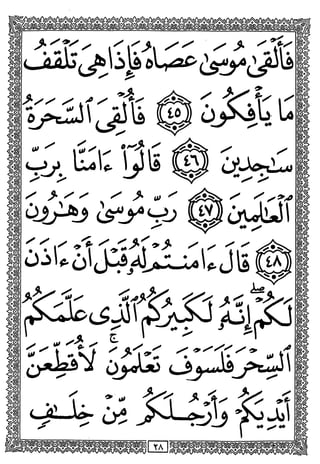 فَأَلْقَىٰ مُوسَىٰ عَصَاهُ فَإِذَا هِيَ تَلْقَفُ
مَا يَأْفِكُونَ ﴿٤٥﴾ فَأُلْقِيَ السَّحَرَةُ
سَاجِدِينَ ﴿٤٦﴾ قَالُوٓا۟ ءَامَنَّا بِرَبِّ
الْعَالَمِينَ ﴿٤٧﴾ رَبِّ مُوسَىٰ وَهَارُونَ
﴿٤٨﴾ قَالَ ءَامَنتُمْ لَهُ قَبْلَ أَنْ ءَاذَنَ
لَكُمْ ۖ إِنَّهُ لَكَبِيرُكُمُ الَّذِي عَلَّمَكُمُ
السِّحْرَ فَلَسَوْفَ تَعْلَمُونَ ۚ لَأُقَطِّعَنَّ
أَيْدِيَكُمْ وَأَرْجُلَكُم مِّنْ خِلَافٍ
٢٨